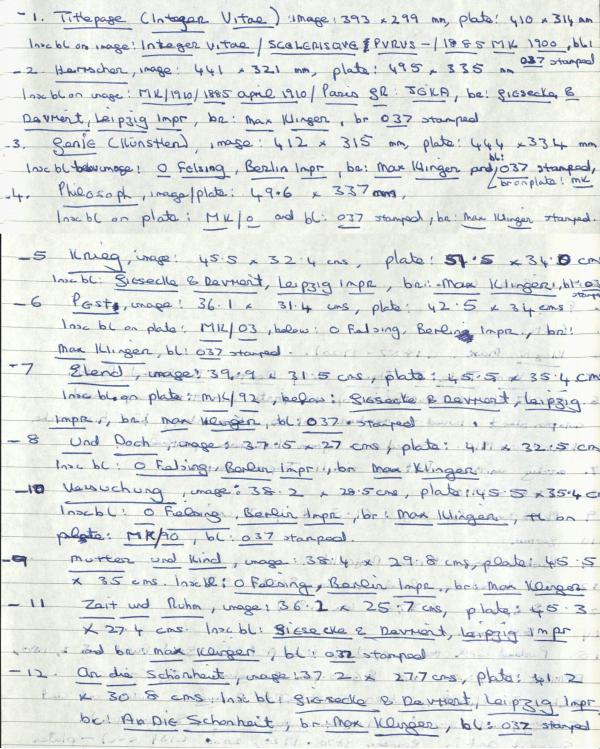 -1. Titlepage (Integer Vitae) image: 393 x 299 mm, plate: 410 x 314 mm
Insc bl on image: Integer Vitae / SCELERISQVE PVRVS - / 1885 MK 1900, bl:
037 stamped
-2. Herrscher, image: 441 x 321 mm, plate: 495 x 335 mm
Insc bl on image: MK/1910/1885 april 1910/ Paris GR: JGKA, be: Giesecke &
Devrient, Leipzig Impr, br: Max Klinger, br 037 stamped
-3. Genie (Künstler), image: 412 x 315 mm, plate: 444 x 334 mm
Insc bl image: O Felsing, Berlin Impr, br: Max Klinger and bl: 037 stamped,
br on plate: MK
-4. Philosoph, image/plate: 49.6 x 337 mm,
Insc bl on plate: MK/0 and bl: 037 stamped, br: Max Klinger stamped.
-5 Krieg, image: 45.5 x 32.4 cms, plate: 51.5 x 34.0 cms
Insc bl: Giesecke & Devrient, Leipzig Impr, br: Max Klinger, bl: 03
stamp
-6 Pest, image: 36.1 x 31.4 cms, plate: 42.5 x 34 cms
Insc bl on plate: MK/03, below: O Felsing, Berlin Impr, br:
Max Klinger, bl: 037 stamped.
-7 Elend, image: 39.9 x 31.5 cms, plate: 45.5 x 35.4 cm
Insc bl on plate: MK/92, below: Giesecke & Devrient, Leipzig
Impr, br: Max Klinger, bl: 037 stamped
-8 Und Doch, image: 37.5 x 27 cms, plate: 41 x 32.5 cm
Insc bl: O Felsing, Berlin Impr, br Max Klinger
-10 Versuchung, image: 38.2 x 28.5 cms, plate: 45.5 x 35.4 c
Insc bl: O Felsing, Berlin Impr, br: Max Klinger, tl on
plate: MK/90, bl: 037 stamped.
-9 Mutter und Kind, image: 38.4 x 29.8 cms, plate: 45.5
x 35 cms. Insc bl: O Felsing, Berlin Impr, br: Max Klinger
-11 Zeit und Ruhm, image: 36.2 x 25.7 cms, plate: 45.3
x 27.4 cms. Insc bl: Giesecke & Devrient, Leipzig Impr
and br: Max Klinger, bl: 032 stamped
-12. An die Schönheit, image: 37.2 x 27.7 cms, plate: 41.2
x 30.8 cms Insc bl: Giesecke & Devrient, Leipzig Impr
bc: An Die Schonheit, br: Max Klinger, bl: 032 stamped